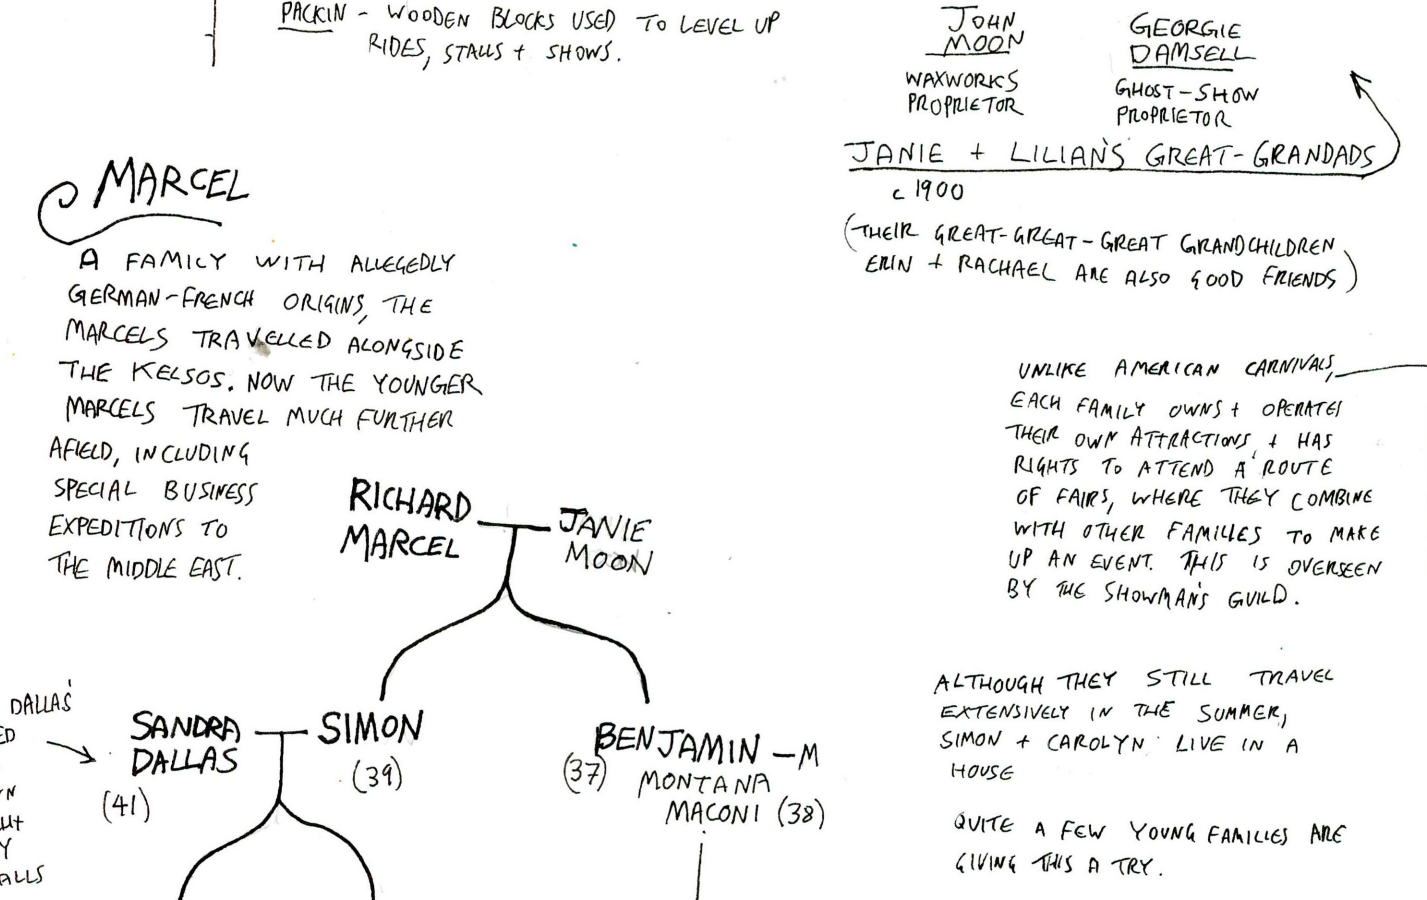 PACKIN - WOODEN BLOCKS USED TO LEVEL UP
RIDES, STALLS + SHOWS.
JOHN
MOON
WAXWORKS
PROPRIETOR
GEORGIE
DAMSELL
GHOST-SHOW
PROPRIETOR
JANIE + LILIAN'S GREAT-GRANDADS
c 1900
(THEIR GREAT-GREAT-GREAT GRANDCHILDREN
ERIN + RACHAEL ARE ALSO GOOD FRIENDS)
MARCEL
A FAMILY WITH ALLEGEDLY
GERMAN-FRENCH ORIGINS, THE
MARCELS TRAVELLED ALONGSIDE
THE KELSOS. NOW THE YOUNGER
MARCELS TRAVEL MUCH FURTHER
AFIELD, INCLUDING
SPECIAL BUSINESS
EXPEDITIONS TO
THE MIDDLE EAST.
UNLIKE AMERICAN CARNIVALS,
EACH FAMILY OWNS + OPERATES
THEIR OWN ATTRACTIONS, + HAS
RIGHTS TO ATTEND A ROUTE
OF FAIRS, WHERE THEY COMBINE
WITH OTHER FAMILIES TO MAKE
UP AN EVENT. THIS IS OVERSEEN
BY THE SHOWMAN'S GUILD.
RICHARD
MARCEL
JANIE
MOON
DALLAS'
ED
N
UT
Y
ALLS
SANDRA
DALLAS
(41)
SIMON
(39)
BENJAMIN - M
(37) MONTANA
MACONI (38)
ALTHOUGH THEY STILL TRAVEL
EXTENSIVELY IN THE SUMMER,
SIMON + CAROLYN LIVE IN A
HOUSE
QUITE A FEW YOUNG FAMILIES ARE
GIVING THIS A TRY.